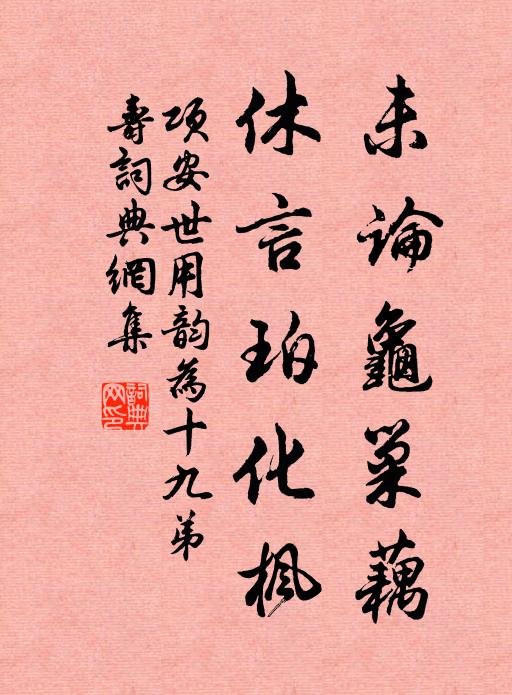 未論龜巢藕
休言珀化楓
項安世用韵為十九弟
壽詞典網集
詞典网印